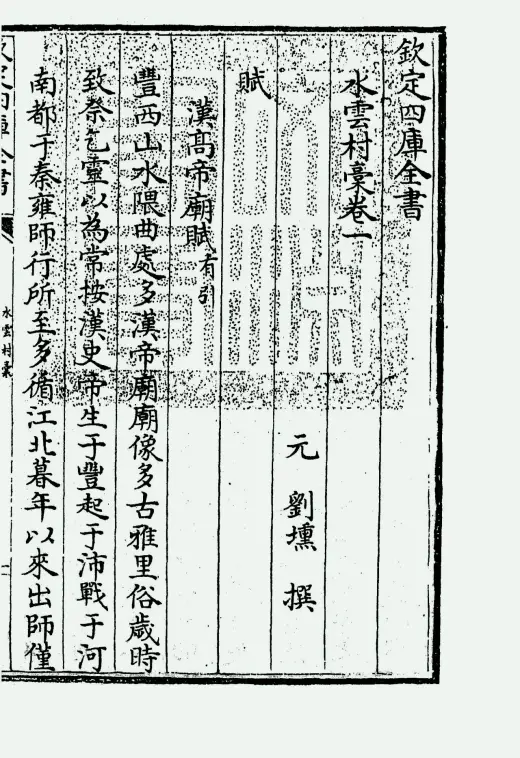 欽定四庫全書
水雲村稾卷一
元 劉壎 撰
賦
漢高帝廟賦有引
豐西山水隈曲處多漢帝廟廟像多古雅里俗歲時
致祭乞靈以為常按漢史帝生于豐起于沛戰于河
南都于秦雍師行所至多循江北暮年以來出師僅
欽定四庫全書
水雲村稾